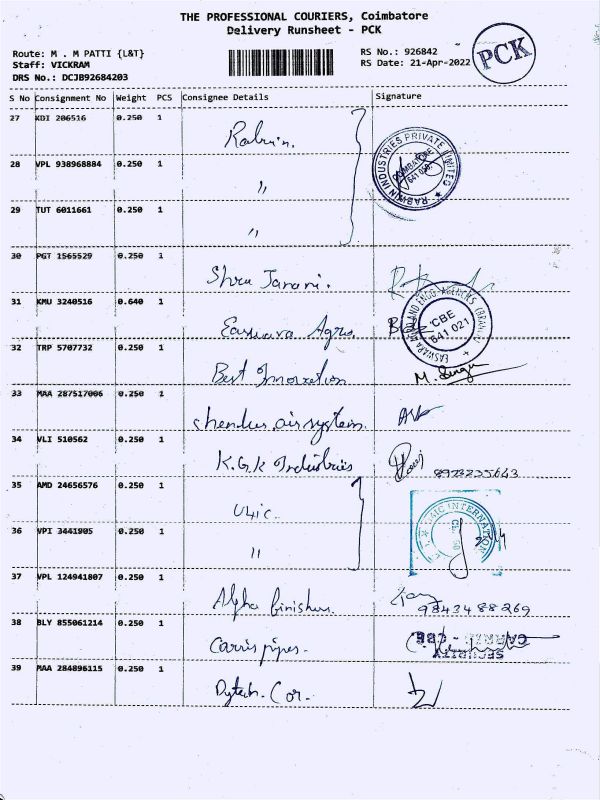 THE PROFESSIONAL COURIERS, Coimbatore
Delivery Runsheet - PCK
Route: M . M PATTI {L&T}
Staff: VICKRAM
DRS No.: DCJB92684203
RS No.: 926842
RS Date: 21-Apr-2022
PCK
S No Consignment No Weight PCS Consignee Details Signature
27 KDI 206516 0.250 1
RABWIN INDUSTRIES PRIVATE LIMITED
COIMBATORE
28 VPL 938968884 0.250 1
"
29 TUT 6011661 0.250 1
"
30 PGT 1565529 0.250 1
Shree Janani.
31 KMU 3240516 0.640 1
Easwara Agro.
CBE
641 021
32 TRP 5707732 0.250 1
Best Innovation
33 MAA 287517006 0.250 1
chendur air system.
34 VLI 510562 0.250 1
K.G.K Industries
35 AMD 24656576 0.250 1
INTERNATIONAL
36 VPI 3441905 0.250 1
"
37 VPL 124941807 0.250 1
98434 88 269
38 BLY 855061214 0.250 1
Carris pipes.
SECURITY
39 MAA 284896115 0.250 1
Dytech. Cor.